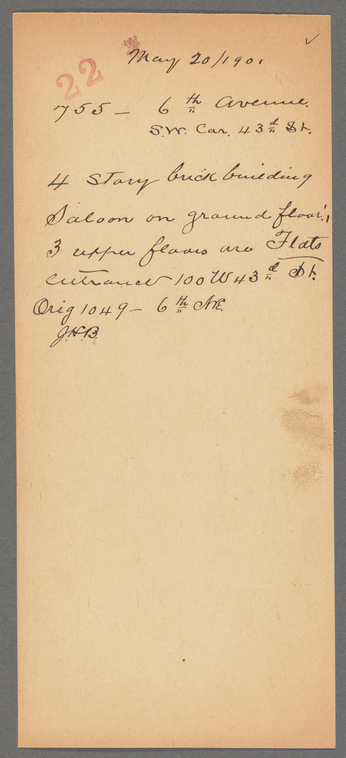 22
May 20/1901
755 – 6th Avenue.
S.W. Cor. 43d St.
4 Story brick building
Saloon on ground floor,
3 upper floors are Flats
entrance 100 W 43d St.
Orig 1049 – 6th Av.
J.H.B.